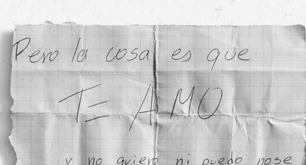 Pero la cosa es que
TE AMO
y no quiero ni puedo